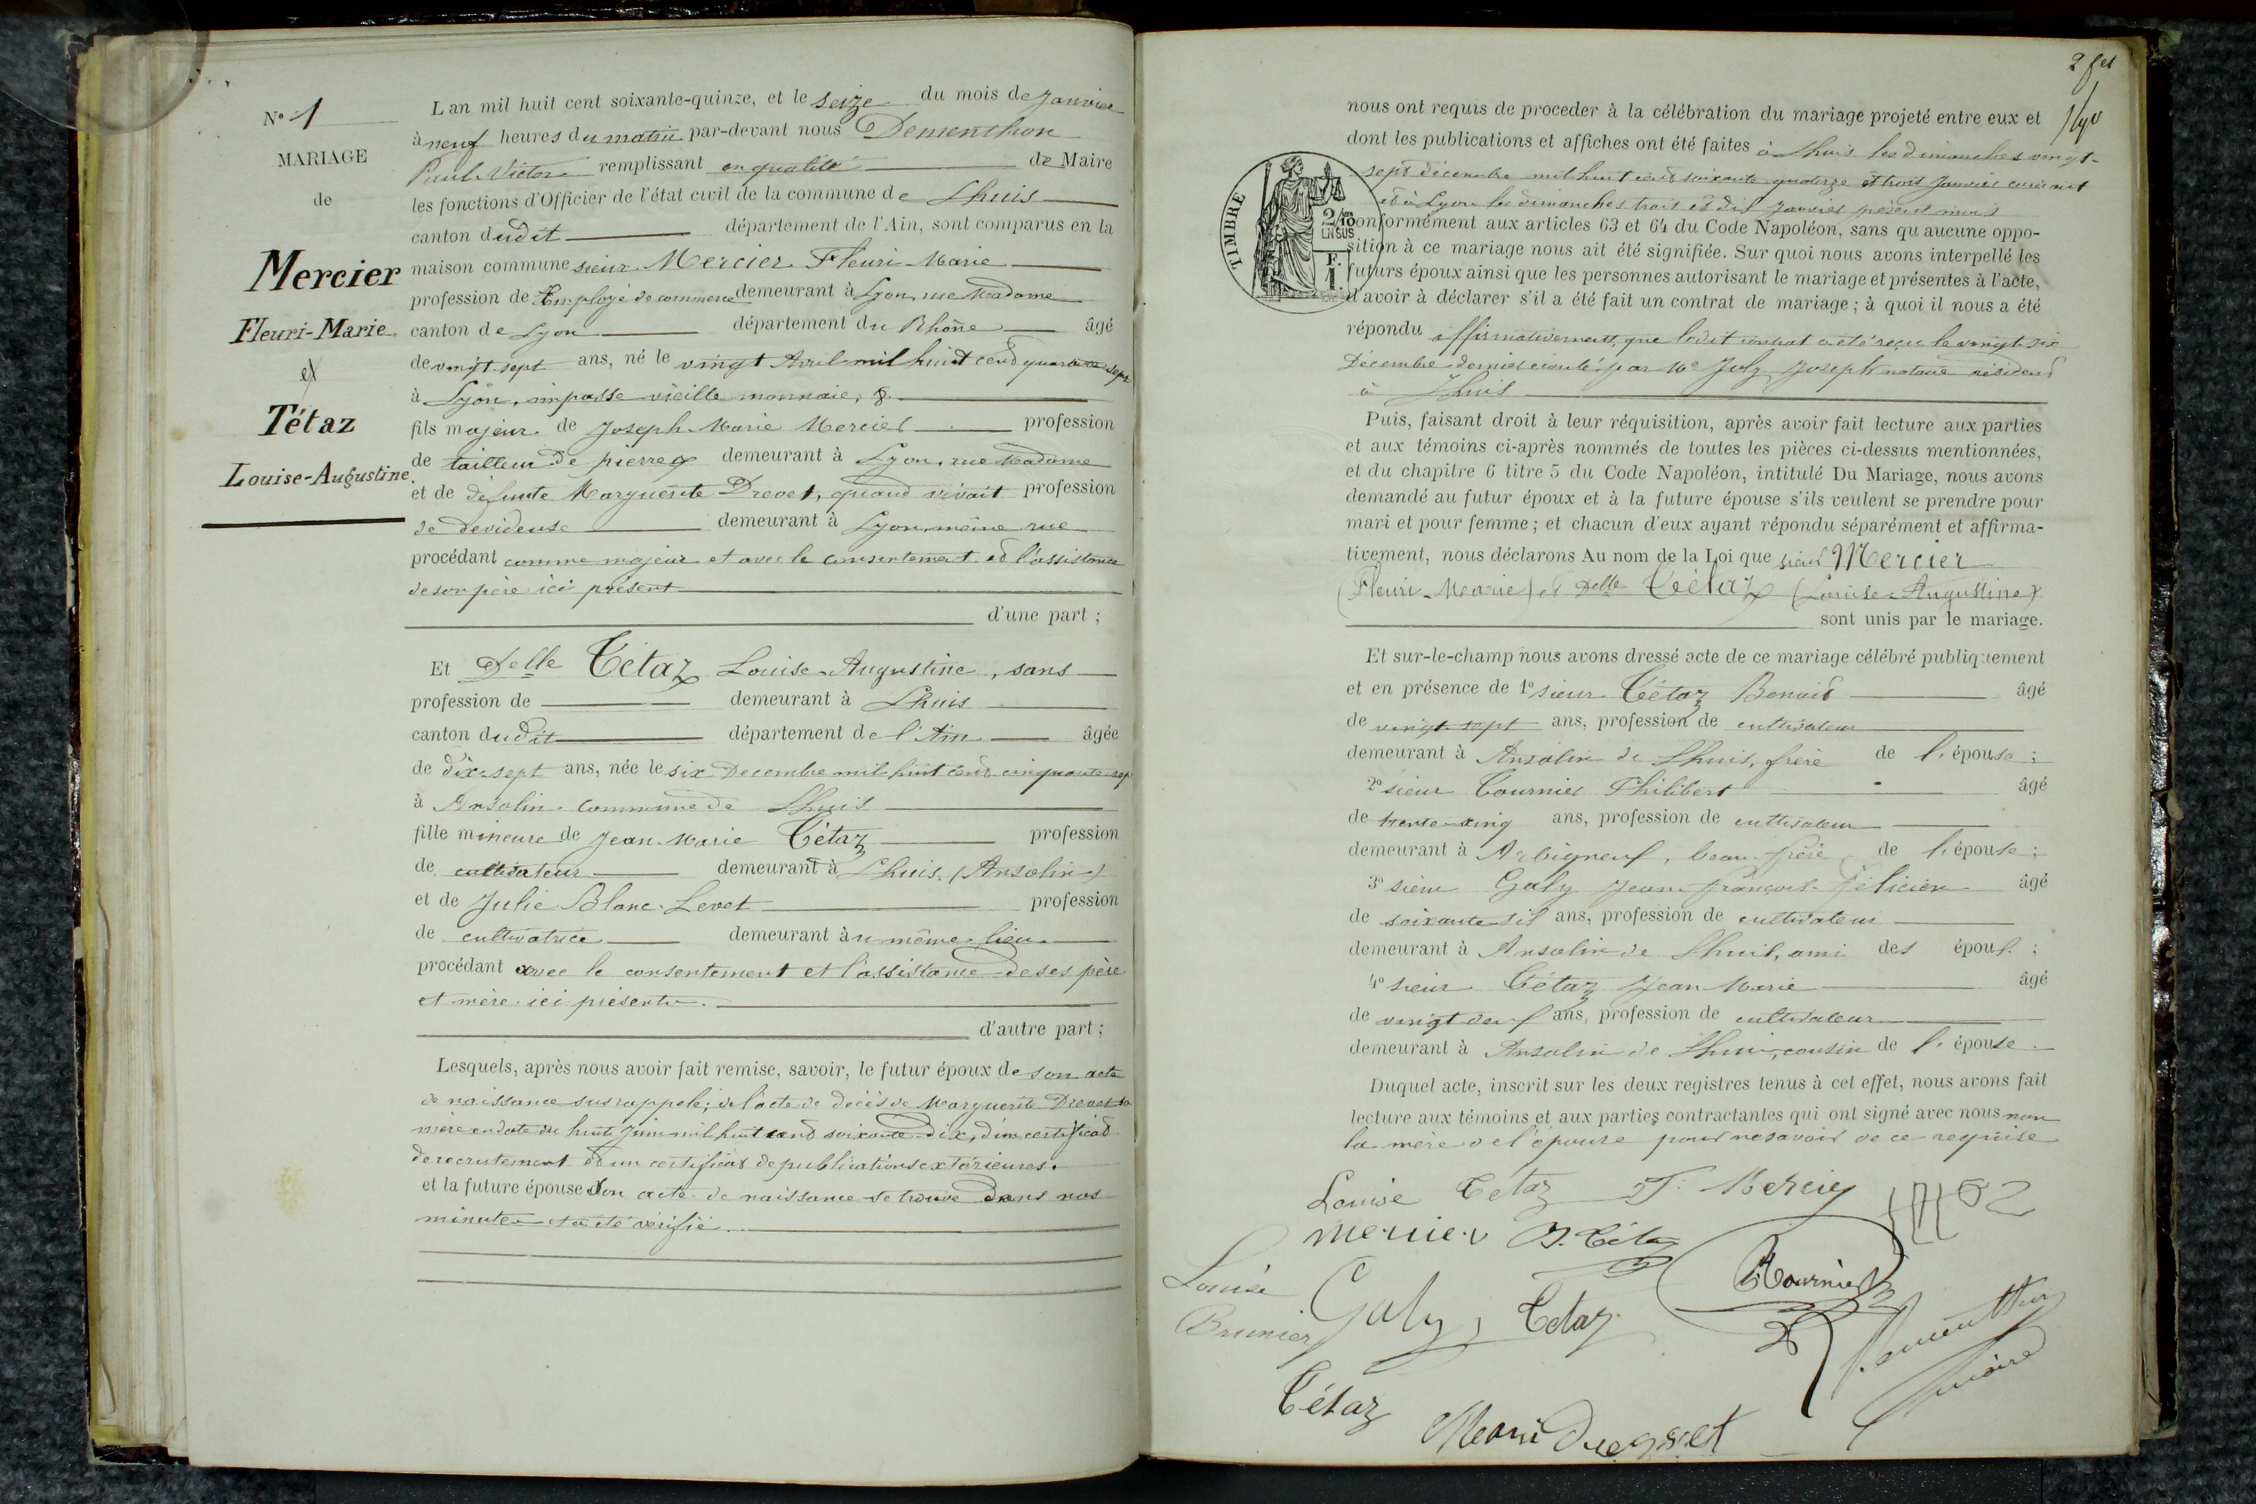 N° 1
MARIAGE
de
Mercier
Fleuri-Marie
et
Tétaz
Louise-Augustine
L'an mil huit cent soixante-quinze, et le seize du mois de Janvier
à neuf heures du matin par-devant nous Dementhon
Paul Victor remplissant en qualité de Maire
les fonctions d'Officier de l'état civil de la commune de Lhuis
canton dudit département de l'Ain, sont comparus en la
maison commune sieur Mercier Fleuri-Marie
profession de Employé de commerce demeurant à Lyon, rue Madame
canton de Lyon département du Rhône âgé
de vingt-sept ans, né le vingt Avril mil huit cent quarante sept
à Lyon, impasse vieille monnaie, 8
fils majeur de Joseph-Marie Mercier profession
de tailleur de pierres demeurant à Lyon, rue Madame
et de défunte Marguerite Drevet, quand vivait profession
de devideuse demeurant à Lyon même rue
procédant comme majeur et avec le consentement et l'assistance
de son père ici présent
d'une part ;
Et Delle Tétaz Louise-Augustine, sans
profession de demeurant à Lhuis
canton dudit département de l'Ain âgée
de dix-sept ans, née le six Decembre mil huit cent cinquante sept
à Ansolin commune de Lhuis
fille mineure de Jean-Marie Tétaz profession
de cultivateur demeurant à Lhuis (Ansolin)
et de Julie Blanc-Levet profession
de cultivatrice demeurant àu même lieu
procédant avec le consentement et l'assistance de ses père
et mère ici présents
d'autre part ;
Lesquels, après nous avoir fait remise, savoir, le futur époux de son acte
de naissance susrappelé; de l'acte de décès de Marguerite Drevet sa
mère en date du huit Juin mil huit cent soixante-dix, d'un certificat
de recrutement et un certificat de publications extérieures.
et la future épouse son acte de naissance se trouve dans nos
minutes et a été vérifié
2 fet
nous ont requis de proceder à la célébration du mariage projeté entre eux et
dont les publications et affiches ont été faites à Lhuis les dimanches vingt-
sept décembre mil huit cent soixante quatorze et trois Janvier courant
et à Lyon les dimanches trois et dix Janvier présent mois
TIMBRE
2/10 EN SUS
F. 1.
conformément aux articles 63 et 64 du Code Napoléon, sans qu'aucune oppo-
sition à ce mariage nous ait été signifiée. Sur quoi nous avons interpellé les
futurs époux ainsi que les personnes autorisant le mariage et présentes à l'acte,
d'avoir à déclarer s'il a été fait un contrat de mariage ; à quoi il nous a été
répondu affirmativement, que ledit contrat a été reçu le vingt-six
Décembre dernier écoulé par Me Joly Joseph notaire résidant
à Lhuis
Puis, faisant droit à leur réquisition, après avoir fait lecture aux parties
et aux témoins ci-après nommés de toutes les pièces ci-dessus mentionnées,
et du chapitre 6 titre 5 du Code Napoléon, intitulé Du Mariage, nous avons
demandé au futur époux et à la future épouse s'ils veulent se prendre pour
mari et pour femme ; et chacun d'eux ayant répondu séparément et affirma-
tivement, nous déclarons Au nom de la Loi que sieur Mercier
(Fleuri-Marie) et Delle Tétaz (Louise-Augustine)
sont unis par le mariage.
Et sur-le-champ nous avons dressé acte de ce mariage célébré publiquement
et en présence de 1° sieur Tétaz Benoit âgé
de vingt-sept ans, profession de cultivateur
demeurant à Ansolin de Lhuis, frère de l'épouse ;
2° sieur Tournier Philibert âgé
de trente-cinq ans, profession de cultivateur
demeurant à Arbigneuf, beau-frère de l'épouse ;
3° sieur Galy Jean-François-Félicien âgé
de soixante-six ans, profession de cultivateur
demeurant à Ansolin de Lhuis, ami des époux ;
4° sieur Tétaz Jean Marie âgé
de vingt-deux ans, profession de cultivateur
demeurant à Ansolin de Lhuis, cousin de l'épouse
Duquel acte, inscrit sur les deux registres tenus à cet effet, nous avons fait
lecture aux témoins et aux parties contractantes qui ont signé avec nous non
la mère de l'épouse pour ne savoir de ce requise
Louise Tetaz F. Mercier
Mercier B. Tétaz
Louise
Brunier
Galy Tetaz Tournier
Dementhon
maire
Tétaz